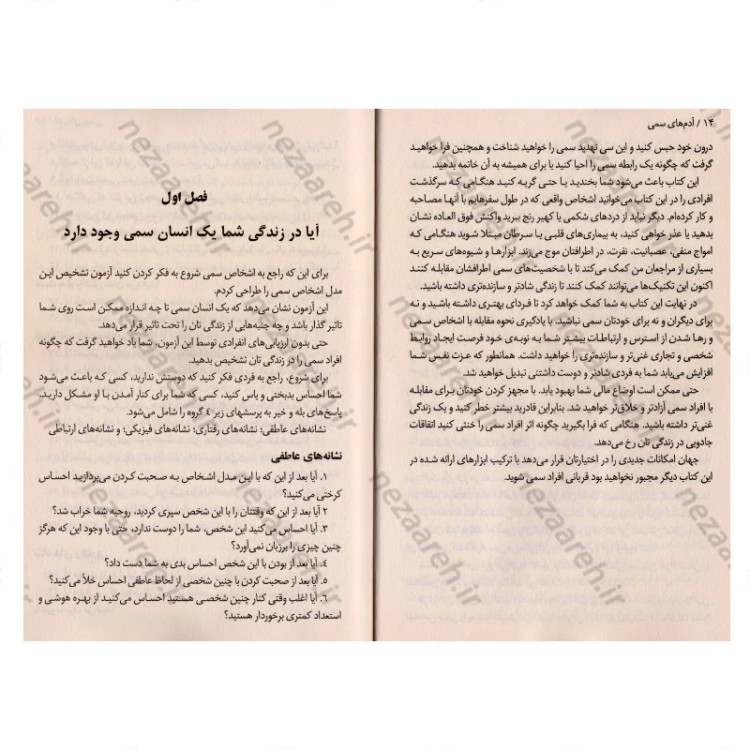 ۱۴ / آدم‌های سمی
درون خود حبس کنید و این سی تهدید سمی را خواهید شناخت و همچنین فرا خواهید
گرفت که چگونه یک رابطه سمی را احیا کنید یا برای همیشه به آن خاتمه بدهید.
این کتاب باعث می‌شود شما بخندید یا حتی گریه کنید هنگامی که سرگذشت
افرادی را در این کتاب می‌خوانید اشخاص واقعی که در طول سفرهایم با آنها مصاحبه
و کار کرده‌ام. دیگر نباید از دردهای شکمی یا کهیر رنج ببرید واکنش فوق العاده نشان
بدهید یا عذر خواهی کنید، به بیماری‌های قلبی یا سرطان مبتلا شوید هنگامی که
امواج منفی، عصبانیت، نفرت، در اطرافتان موج می‌زند. ابزارها و شیوه‌های سریع به
بسیاری از مراجعان من کمک می‌کند تا با شخصیت‌های سمی اطرافشان مقابله کنند
اکنون این تکنیک‌ها می‌توانند کمک کنند تا زندگی شادتر و سازنده‌تری داشته باشید.
در نهایت این کتاب به شما کمک خواهد کرد تا فردای بهتری داشته باشید و نه
برای دیگران و نه برای خودتان سمی نباشید. با یادگیری نحوه مقابله با اشخاص سمی
و رها شدن از استرس و ارتباطات بیشتر شما به نوبه‌ی خود فرصت ایجاد روابط
شخصی و تجاری غنی‌تر و سازنده‌تری را خواهید داشت. همانطور که عزت نفس شما
افزایش می‌یابد شما به فردی شادتر و دوست داشتنی تبدیل خواهید شد.
حتی ممکن است اوضاع مالی شما بهبود یابد. با مجهز کردن خودتان برای مقابله
با افراد سمی آزادتر و خلاق‌تر خواهید شد. بنابراین قادرید بیشتر خطر کنید و یک زندگی
غنی‌تر داشته باشید. هنگامی که فرا بگیرید چگونه اثر افراد سمی را خنثی کنید اتفاقات
جادویی در زندگی تان رخ می‌دهد.
جهان امکانات جدیدی را در اختیارتان قرار می‌دهد با ترکیب ابزارهای ارائه شده در
این کتاب دیگر مجبور نخواهید بود قربانی افراد سمی شوید.
فصل اول
آیا در زندگی شما یک انسان سمی وجود دارد
برای این که راجع به اشخاص سمی شروع به فکر کردن کنید آزمون تشخیص این
مدل اشخاص سمی را طراحی کردم.
این آزمون نشان می‌دهد که یک انسان سمی تا چه اندازه ممکن است روی شما
تاثیر گذار باشد و چه جنبه‌هایی از زندگی تان را تحت تاثیر قرار می‌دهد.
حتی بدون ارزیابی‌های انفرادی توسط این آزمون، شما یاد خواهید گرفت که چگونه
افراد سمی را در زندگی تان تشخیص بدهید.
برای شروع، راجع به فردی فکر کنید که دوستش ندارید، کسی که باعث می‌شود
شما احساس بدبختی و یاس کنید، کسی که شما برای کنار آمدن با او مشکل دارید،
پاسخ‌های بله و خیر به پرسشهای زیر ۴ گروه را شامل می‌شود.
نشانه‌های عاطفی؛ نشانه‌های رفتاری؛ نشانه‌های فیزیکی؛ و نشانه‌های ارتباطی
نشانه‌های عاطفی
۱. آیا بعد از این که با این مدل اشخاص به صحبت کردن می‌پردازید احساس
کرختی می‌کنید؟
۲ آیا بعد از این که وقتتان را با این شخص سپری کردید، روحیه شما خراب شد؟
۳. آیا احساس می‌کنید این شخص، شما را دوست ندارد، حتی با وجود این که هرگز
چنین چیزی را برزبان نمی‌آورد؟
۴. آیا بعد از بودن با این شخص احساس بدی به شما دست داد؟
۵. آیا بعد از صحبت کردن با چنین شخصی از لحاظ عاطفی احساس خلأ می‌کنید؟
۶. آیا اغلب وقتی کنار چنین شخصی هستید احساس می‌کنید از بهره هوشی و
استعداد کمتری برخوردار هستید؟
nezaareh.ir